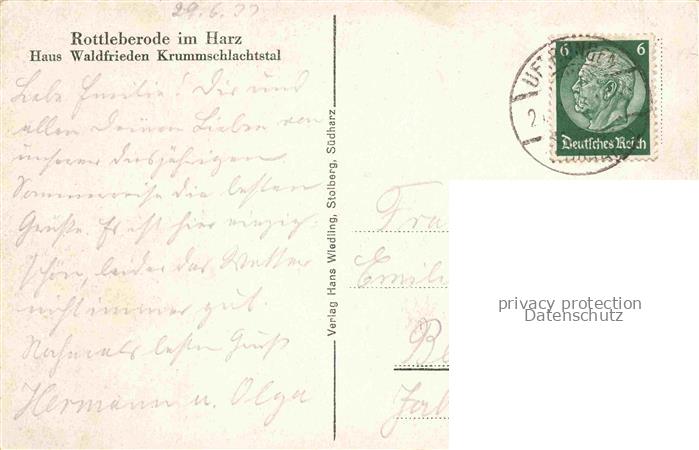 29.6.37
Rottleberode im Harz
Haus Waldfrieden Krummschlachtstal
Liebe Emilie! Dir und
allen Deinen Lieben von
unserer diesjährigen
Sommerreise die besten
Grüße. Es ist hier einzig
schön, leider das Wetter
nicht immer gut.
Nochmals beste Grüße
Hermann u. Olga
Verlag Hans Wiedling, Stolberg, Südharz.
UFTRUNGEN
6 6
Deutsches Reich
Fra
Emili
Be
privacy protection
Datenschutz